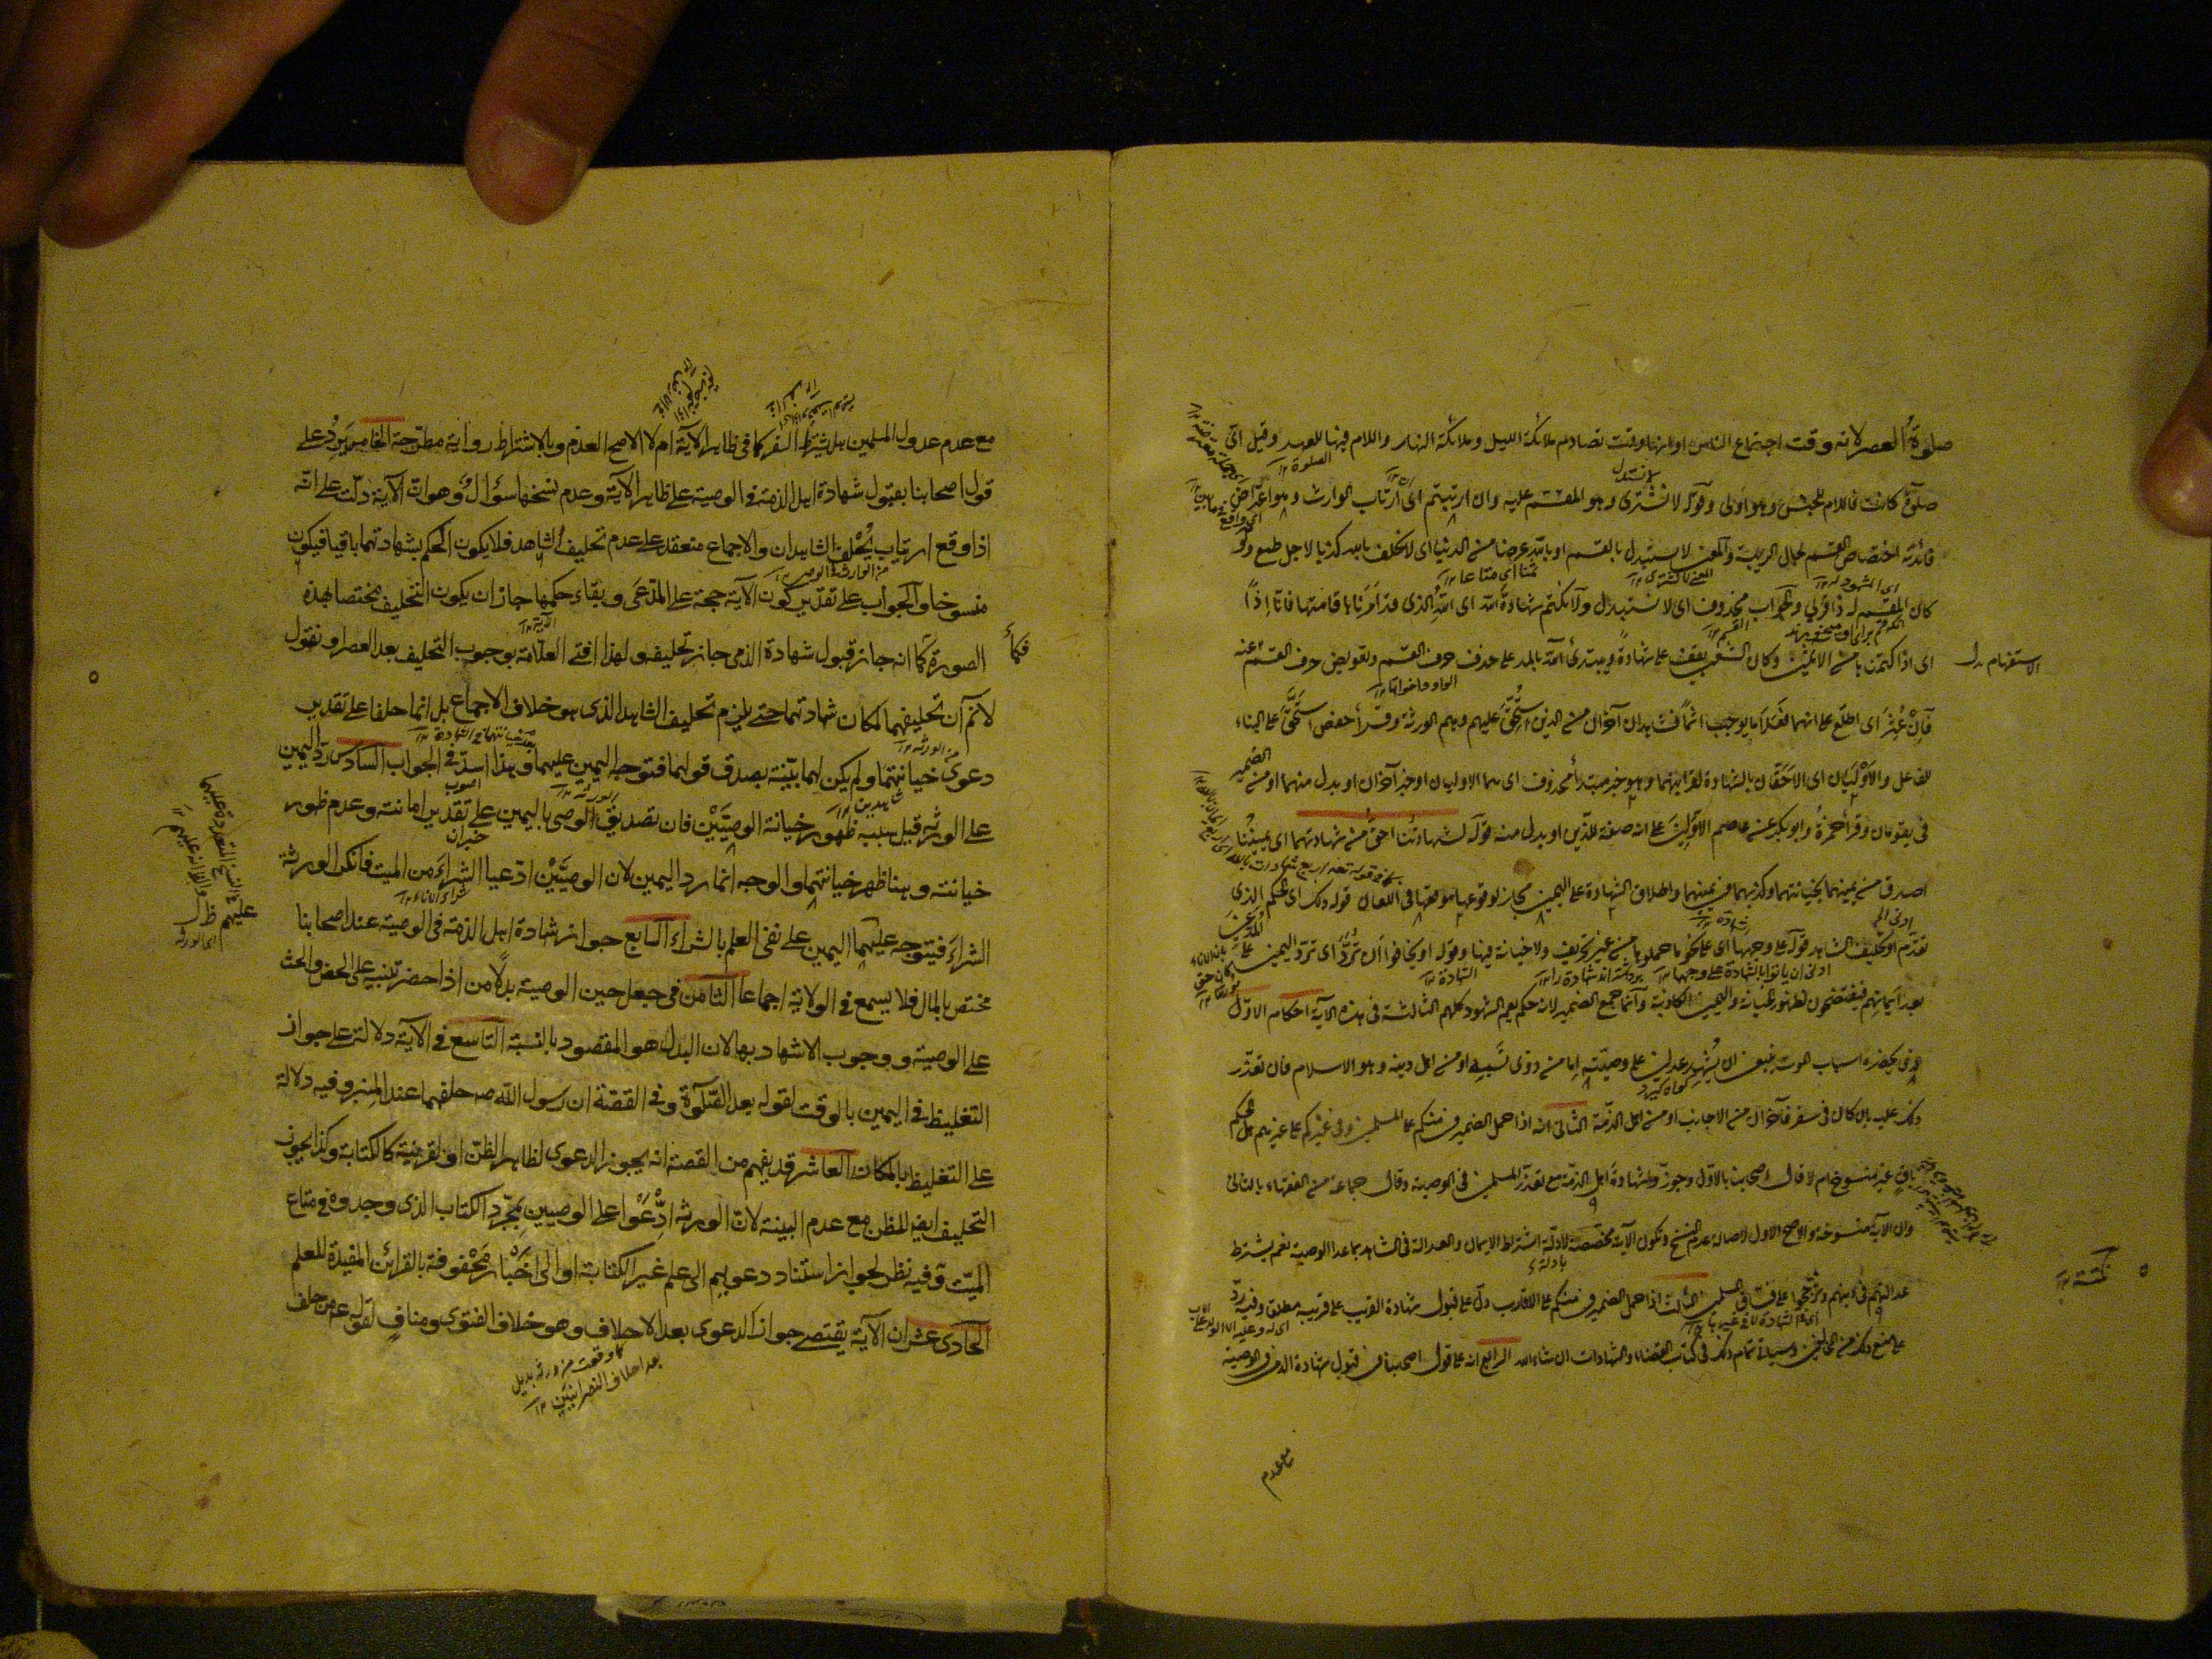 صلوة العصر لانه وقت اجتماع الناس او لانها وقت تصادم ملائكة الليل وملائكة النهار واللام فيها للعهد وقيل اىّ
صلوة كانت فاللام للجنس وهو اولى وقوله لا نشترى وهو المقسم عليه وان ارتبتم اى ارتاب الوارث وهو اعتراض
فائدته اختصاص القسم بحال الريبة والمعنى لا نستبدل بالقسم او بالله عرضا من الدنيا اى لا نحلف بالله كذبا لاجل طمع ولو
كان المقسم له ذا قربى والجواب محذوف اى لا نستبدل ولا نكتم شهادة الله اى الله الذى قد امرنا باقامتها فانا اذاً
اى اذا كتمنا من الآثمين وكان الشعبى يقف على شهادة ويبتدئ آلله بالمد على حذف حرف القسم وتعويض حرف القسم عنه
الاستفهام بدل
فان عُثِرَ اى اطلع على انهما فعلا ما يوجب اثماً فشاهدان آخران من الذين استُحِقَّ عليهم وهم الورثة وقرأ حفص استَحَقَّ على البناء
للفاعل والاَوْلَيان اى الاحقان بالشهادة لقرابتهما وهو خبر مبتدأ محذوف اى هما الاوليان او خبر آخران او بدل منهما او من الضمير
فى يقومان وقرأ حمزة وابو بكر عن عاصم الاوّلين على انه صفة للذين او بدل منه قوله لشهادتنا احق من شهادتهما اى يميننا
اصدق من يمينهما لخيانتهما وكذبهما فى يمينهما واطلاق الشهادة على اليمين مجاز لوقوعها موقعها فى اللعان قوله ذلك اى الحكم الذى
تقدم او تحليف الشاهد قوله على وجهها اى على نحو ما حملوها من غير تحريف ولا خيانة فيها وقوله او يخافوا ان تُرَدَّ اى ترد اليمين على المدعين
بعد ايمانهم فيفتضحون لظهور الخيانة واليمين الكاذبة وانما جمع الضمير لانه حكم يعم الشهود كلهم الثالثة فى هذه الآية احكام الاول
الذى يحضره اسباب الموت ينبغى ان يُشهد عدلين على وصيته اما من ذوى نسبه او من اهل دينه وهو الاسلام فان تعذر
ذلك عليه بان كان فى سفر فآخران من الاجانب او من اهل الذمة الثانى انه اذا حمل الضمير فى منكم على المسلمين وفى غيركم على غيرهم هل الحكم
باقٍ غير منسوخ ام لا قال اصحابنا بالاول وجوزوا شهادة اهل الذمة مع تعذر المسلمين فى الوصية وقال جماعة من الفقهاء بالثانى
وان الآية منسوخة والاصح الاول لاصالة عدم النسخ وتكون الآية مخصصة لادلة اشتراط الايمان والعدالة فى الشاهد بما عدا الوصية نعم يشترط
عدالتهم فى دينهم ويرجحوا على فساق المسلمين الثالث اذا حمل الضمير فى منكم على الاقارب دل على قبول شهادة القريب على قريبه مطلق وفيه ردّ
على منع ذلك من المخالفين وسيأتى تمام ذلك فى كتاب القضاء والشهادات ان شاء الله الرابع انه على قول اصحابنا من قبول شهادة الذمى فى الوصية
مع عدم
مع عدم عدول المسلمين هل يشترط السفر كما فى ظاهر الآية ام لا الاصح العدم وبالاشتراط رواية مطرحة الخامس يَرِدُ على
قول اصحابنا بقبول شهادة اهل الذمة فى الوصية على ظاهر الآية وعدم نسخها سؤال وهو ان الآية دلّت على انّه
اذا وقع ارتياب يُحلَّف الشاهدان والاجماع منعقد على عدم تحليف الشاهد فلا يكون الحكم بشهادتهما باقيا فيكون
منسوخا والجواب على تقدير كون الآية حجة على المدّعى وبقاء حكمها جاز ان يكون التحليف مختصا بهذه
الصورة كما انه جاز قبول شهادة الذمى جاز تحليفه ولهذا افتى العلّامة بوجوب التحليف بعد العصر او نقول
فكما
لا نم ان تحليفهما لمكان شهادتهما حتى يلزم تحليف الشاهد الذى هو خلاف الاجماع بل انما حلفا على تقدير
دعوى خيانتهما ولم يكن لهما بيّنة بصدق قولهما فتوجه اليمين عليهما وهذا اسدّ فى الجواب السادس ردّ اليمين
على الورثة قيل سببه ظهور خيانة الوصيّين فان تصديق الوصى باليمين على تقدير امانته وعدم ظهور
خيانته وهنا ظهر خيانتهما والوجه انما رد اليمين لان الوصيّين ادّعيا الشراء من الميت فانكر الورثة
الشراء فيتوجه عليهما اليمين على نفى العلم بالشراء السابع جواز شهادة اهل الذمة فى الوصية عند اصحابنا
مختص بالمال فلا يسمع فى الولاية اجماعا الثامن فى جعل حين الوصية بدلاً من اذا حضر تنبيه على الحض والحث
على الوصية ووجوب الاشهاد بها لان البدل هو المقصود بالنسبة التاسع فى الآية دلالة على جواز
التغليظ فى اليمين بالوقت لقوله بعد الصلوة وفى القصة ان رسول الله صه حلفهما عند المنبر وفيه دلالة
على التغليظ بالمكان العاشر قد يفهم من القصة انه يجوز الدعوى لظاهر الظنّ او لقرينة كالكتابة وكذا يجوز
التحليف ايضا للظن مع عدم البينة لانّ الورثة ادَّعَوْا على الوصيين بمجرّد الكتاب الذى وجدوه فى متاع
الميّت وفيه نظر لجواز استناد دعويهم الى علم غير الكتابة او الى اخبار مَحْفوفة بالقرائن المفيدة للعلم
الحادى عشر ان الآية يقتضى جواز الدعوى بعد الاحلاف وهو خلاف الفتوى ومنافٍ لقوله ع من حلف
كما وقعت من ورثة بديل
بعد احلاف النصرانيين ١٢